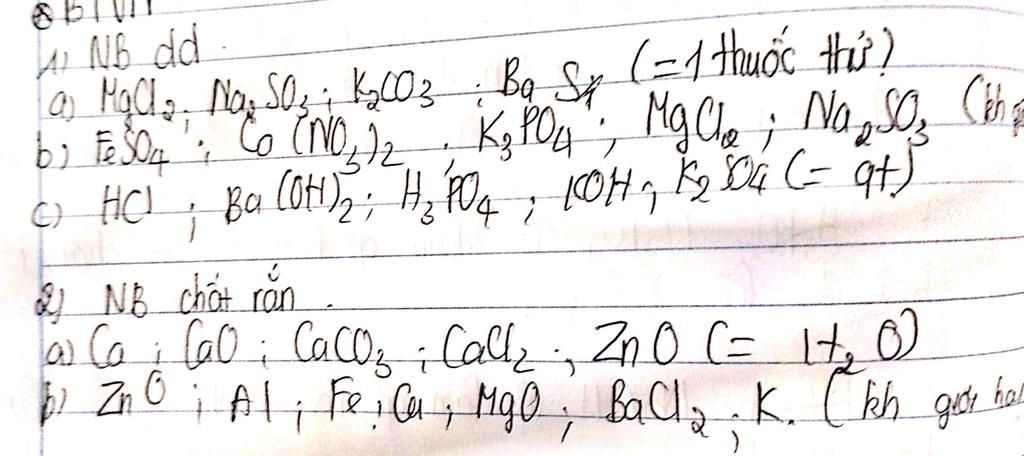 ⊗ BTVN
1) NB dd.
a) MgCl2; Na2SO3; K2CO3; BaS (= 1 thuốc thử)
b) FeSO4; Co(NO3)2; K3PO4; MgCl2; Na2SO3 (kh
c) HCl; Ba(OH)2; H3PO4; KOH; K2SO4 (= qt)
2) NB chất rắn.
a) Ca; CaO; CaCO3; CaCl2; ZnO (= H2O)
b) ZnO; Al; Fe; Cu; MgO; BaCl2; K. (kh giới hạ